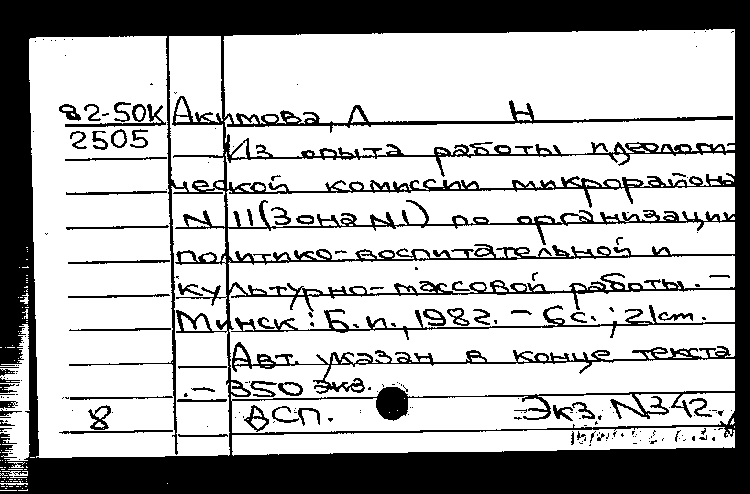 82-50К Акимова, Л Н
2505
Из опыта работы идеологи-
ческой комиссии микрорайона
N 11 (Зона N1) по организации
политико-воспитательной и
культурно-массовой работы. –
Минск: Б.и., 1982. – 6с.; 21cm.
Авт. указан в конце текста
. – 350 экз.
8 ВСП. Экз. N342.